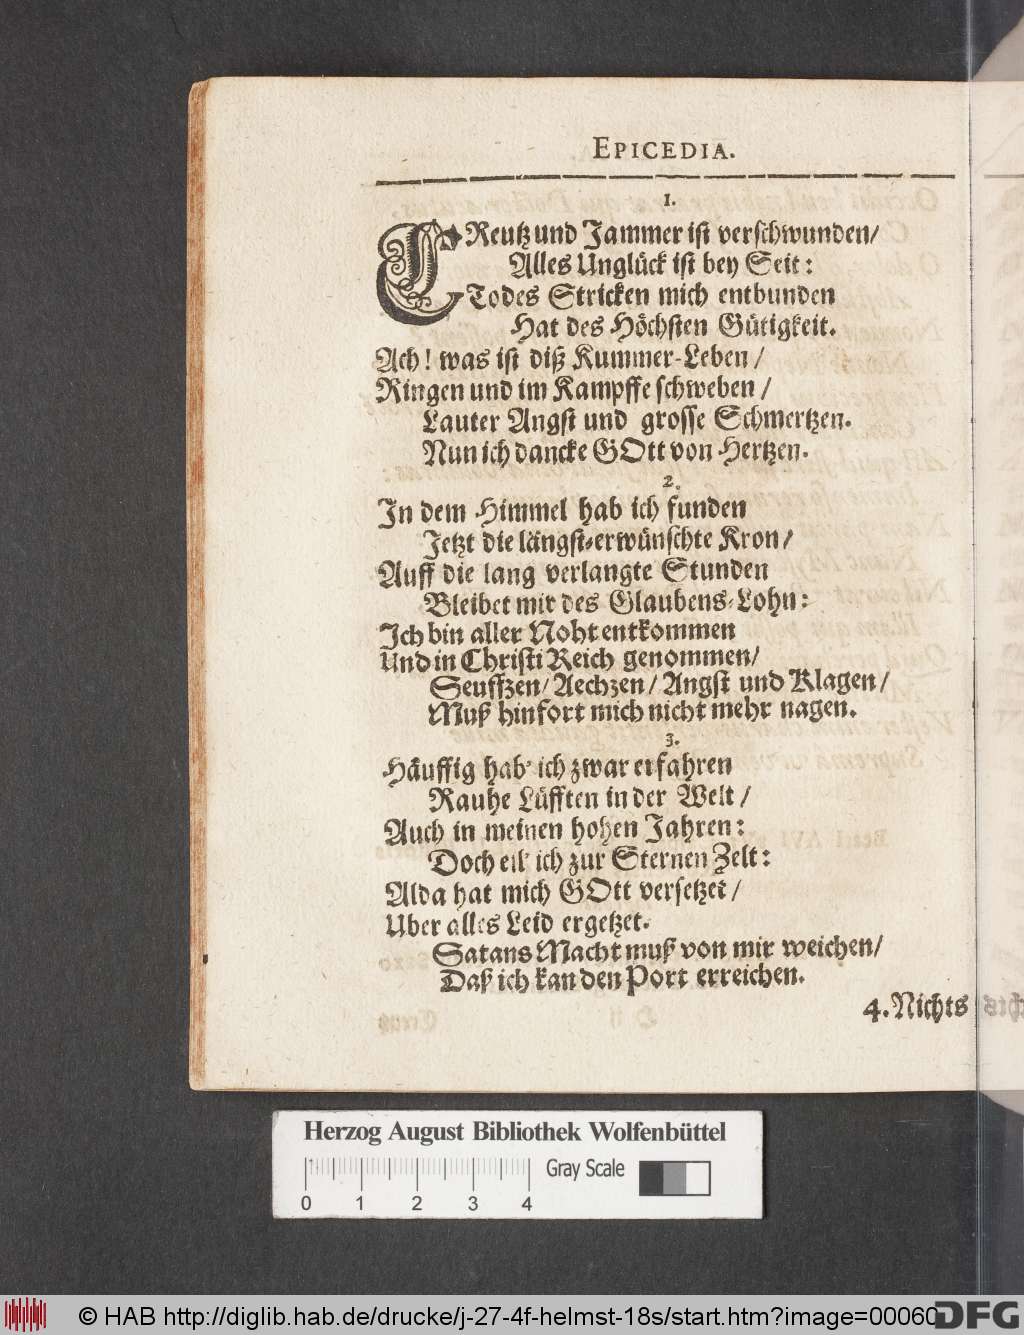 EPICEDIA.
1.
CReutz und Jammer ist verschwunden/
Alles Unglück ist bey Seit:
Todes Stricken mich entbunden
Hat des Höchsten Gütigkeit.
Ach! was ist diß Kummer-Leben/
Ringen und im Kampffe schweben/
Lauter Angst und grosse Schmertzen.
Nun ich dancke GOtt von Hertzen.
2.
In dem Himmel hab ich funden
Jetzt die längst-erwünschte Kron/
Auff die lang verlangte Stunden
Bleibet mir des Glaubens-Lohn:
Ich bin aller Noht entkommen
Und in Christi Reich genommen/
Seufftzen/ Aechzen/ Angst und Klagen/
Muß hinfort mich nicht mehr nagen.
3.
Häuffig hab' ich zwar erfahren
Rauhe Lüfften in der Welt/
Auch in meinen hohen Jahren:
Doch eil' ich zur Sternen Zelt:
Alda hat mich GOtt versetzet/
Uber alles Leid ergetzet.
Satans Macht muß von mir weichen/
Daß ich kan den Port erreichen.
4. Nichts
Herzog August Bibliothek Wolfenbüttel
Gray Scale
0 1 2 3 4
© HAB http://diglib.hab.de/drucke/j-27-4f-helmst-18s/start.htm?image=00060
DFG